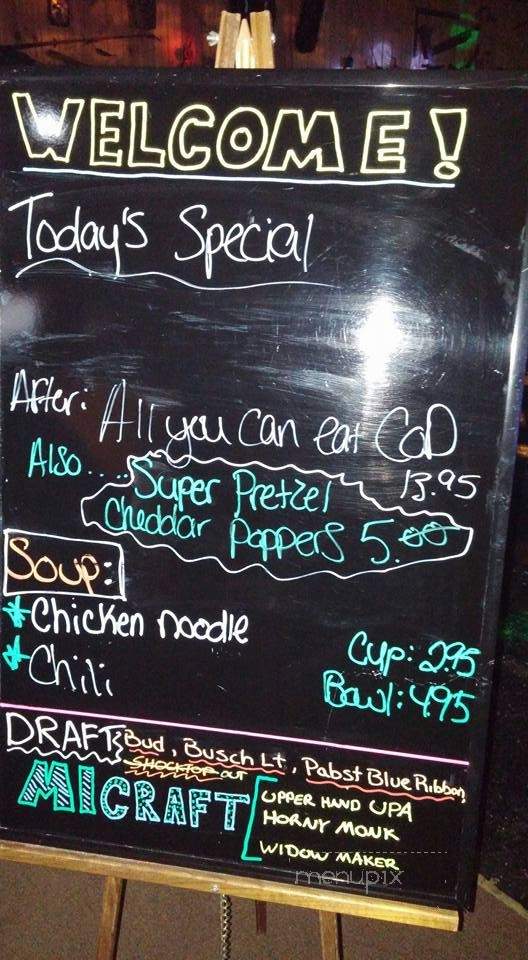 WELCOME!
Today's Special
After: All you can eat CoD
13.95
Also.... Super Pretzel
Cheddar Poppers 5.00
Soup:
*Chicken noodle
*Chili
Cup: 2.95
Bowl: 4.95
DRAFTS Bud, Busch Lt, Pabst Blue Ribbon,
SHOCKTOP OUT
MICRAFT
UPPER HAND UPA
HORNY MONK
WIDOW MAKER
menupix